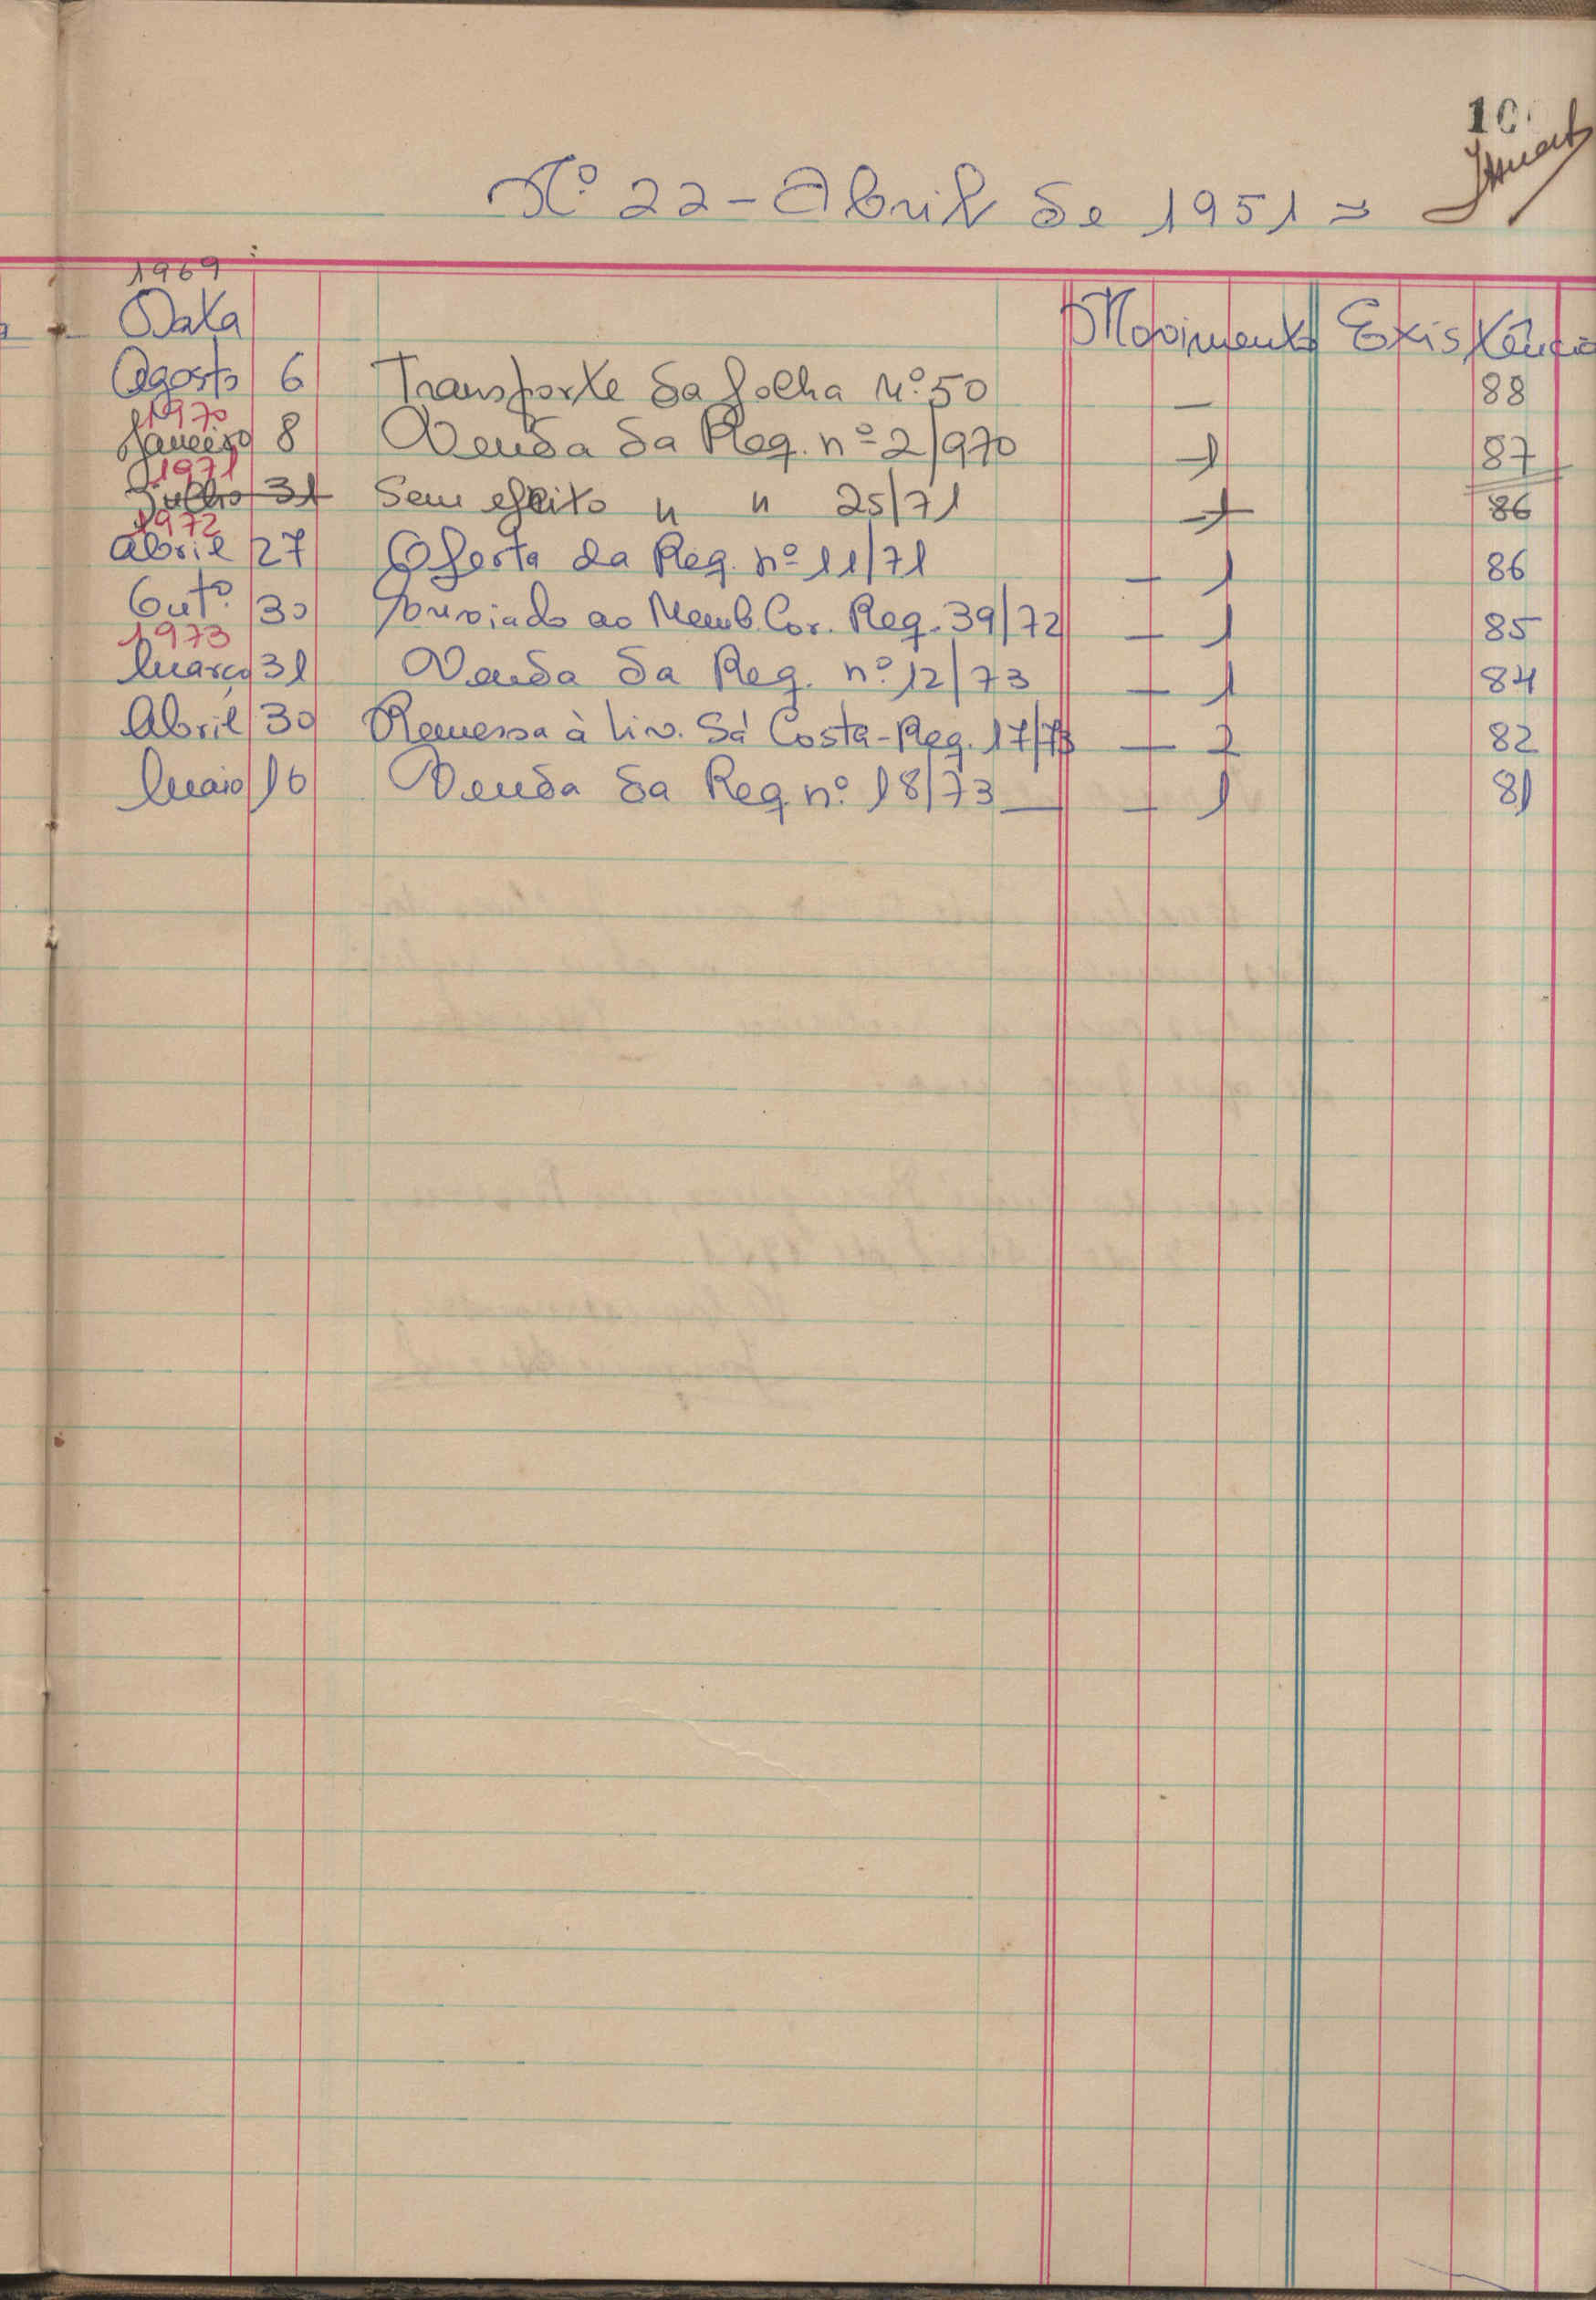 10
Nº 22 - Abril de 1951 =
1969
Data Movimento Existência
Agosto 6 Transporte da folha Nº 50 - 88
1970
Janeiro 8 Venda da Req. nº 2/970 - 1 87
1971
Julho 31 Sem efeito " " 25/71 - 1 86
1972
Abril 27 Oferta da Req. nº 11/71 - 1 86
Outº 30 Enviado ao Memb. Cor. Req. 39/72 - 1 85
1973
Março 31 Venda da Req. nº 12/73 - 1 84
Abril 30 Remessa à Liv. Sá Costa - Req. 17/73 - 2 82
Maio 16 Venda da Req. nº 18/73 - 1 81